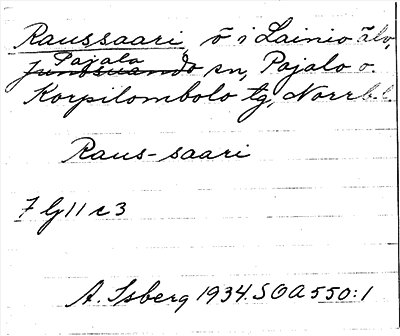 Raussaari, ö i Lainio älv,
Pajala
Junosuando sn, Pajala o.
Korpilombolo tg, Norrb.l.
Raus-saari
7 lj 11 c 3
A. Isberg 1934. SOA 550:1